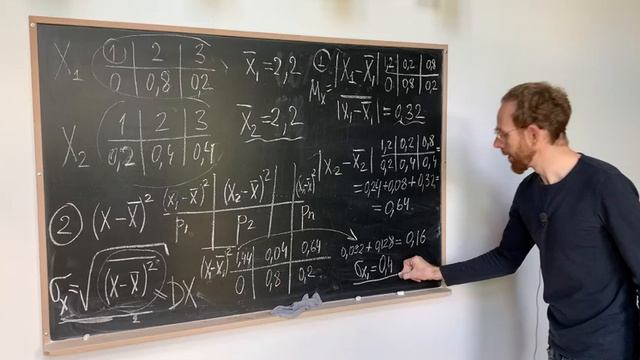 X₁ 1 2 3
0 0,8 0,2
X̄₁ = 2,2
X₂ 1 2 3
0,2 0,4 0,4
X̄₂ = 2,2
① |X₁ - X̄₁| 1,2 0,2 0,8
0 0,8 0,2
Mₓ
|X₁ - X̄₁| = 0,32
|X₂ - X̄₂| 1,2 0,2 0,8
0,2 0,4 0,4 =
= 0,24 + 0,08 + 0,32 =
= 0,64
② (X - X̄)² (X₁ - X̄)² (X₂ - X̄)² (Xₙ - X̄)²
P₁ P₂ Pₙ
(X₁ - X̄₁)² 1,44 0,04 0,64
0 0,8 0,2
0,032 + 0,128 = 0,16
σₓ₁ = 0,4
σₓ = √(X - X̄)² = DX